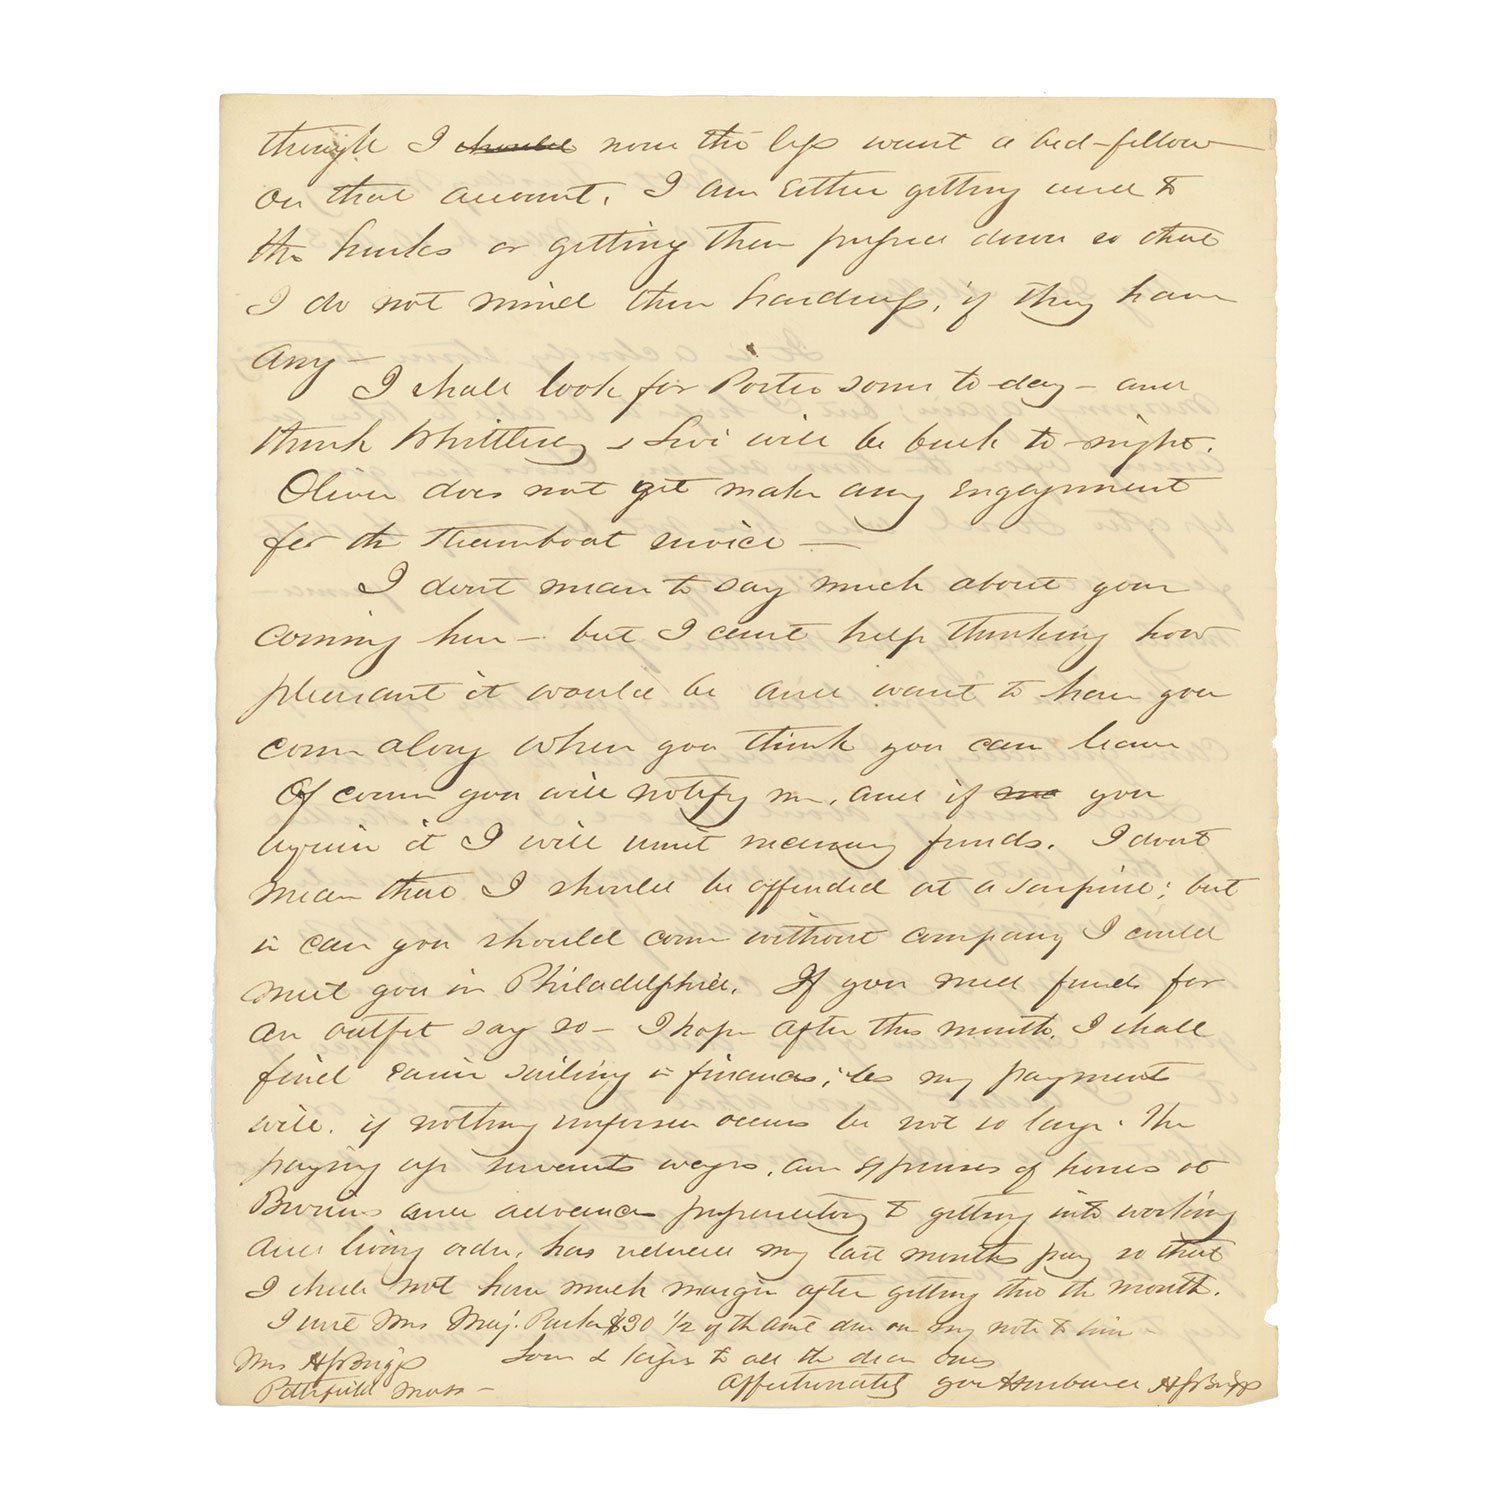 though I should none the less want a bed-fellow
on that account. I am either getting used to
the bunks or getting them pressed down so that
I do not mind their hardness, if they have
any—
I shall look for Porter some to-day — and
think Whittlesey & Levi will be back to-night.
Oliver does not yet make any engagement
for the Steamboat service —
I dont mean to say much about your
coming here — but I cant help thinking how
pleasant it would be and want to have you
come along when you think you can leave
Of course you will notify me, and if me you
require it I will remit necessary funds. I dont
mean that I should be offended at a surprise; but
in case you should come without company I could
meet you in Philadelphia. If you need funds for
an outfit say so — I hope after this month, I shall
find easier sailing in finances; as my payments
will, if nothing unforseen occurs be not so large. The
paying up servants wages, and expenses of horses at
and advances preparatory to getting into working
and living order, has reduced my last months pay so that
I shall not have much margin after getting thro the month.
I sent Mrs Maj. Parker $30 1/2 of the amt due on my note to him —
Love & kisses to all the dear ones
Mrs H S Briggs
Affectionately your Husband H S Briggs
Pittsfield Mass —